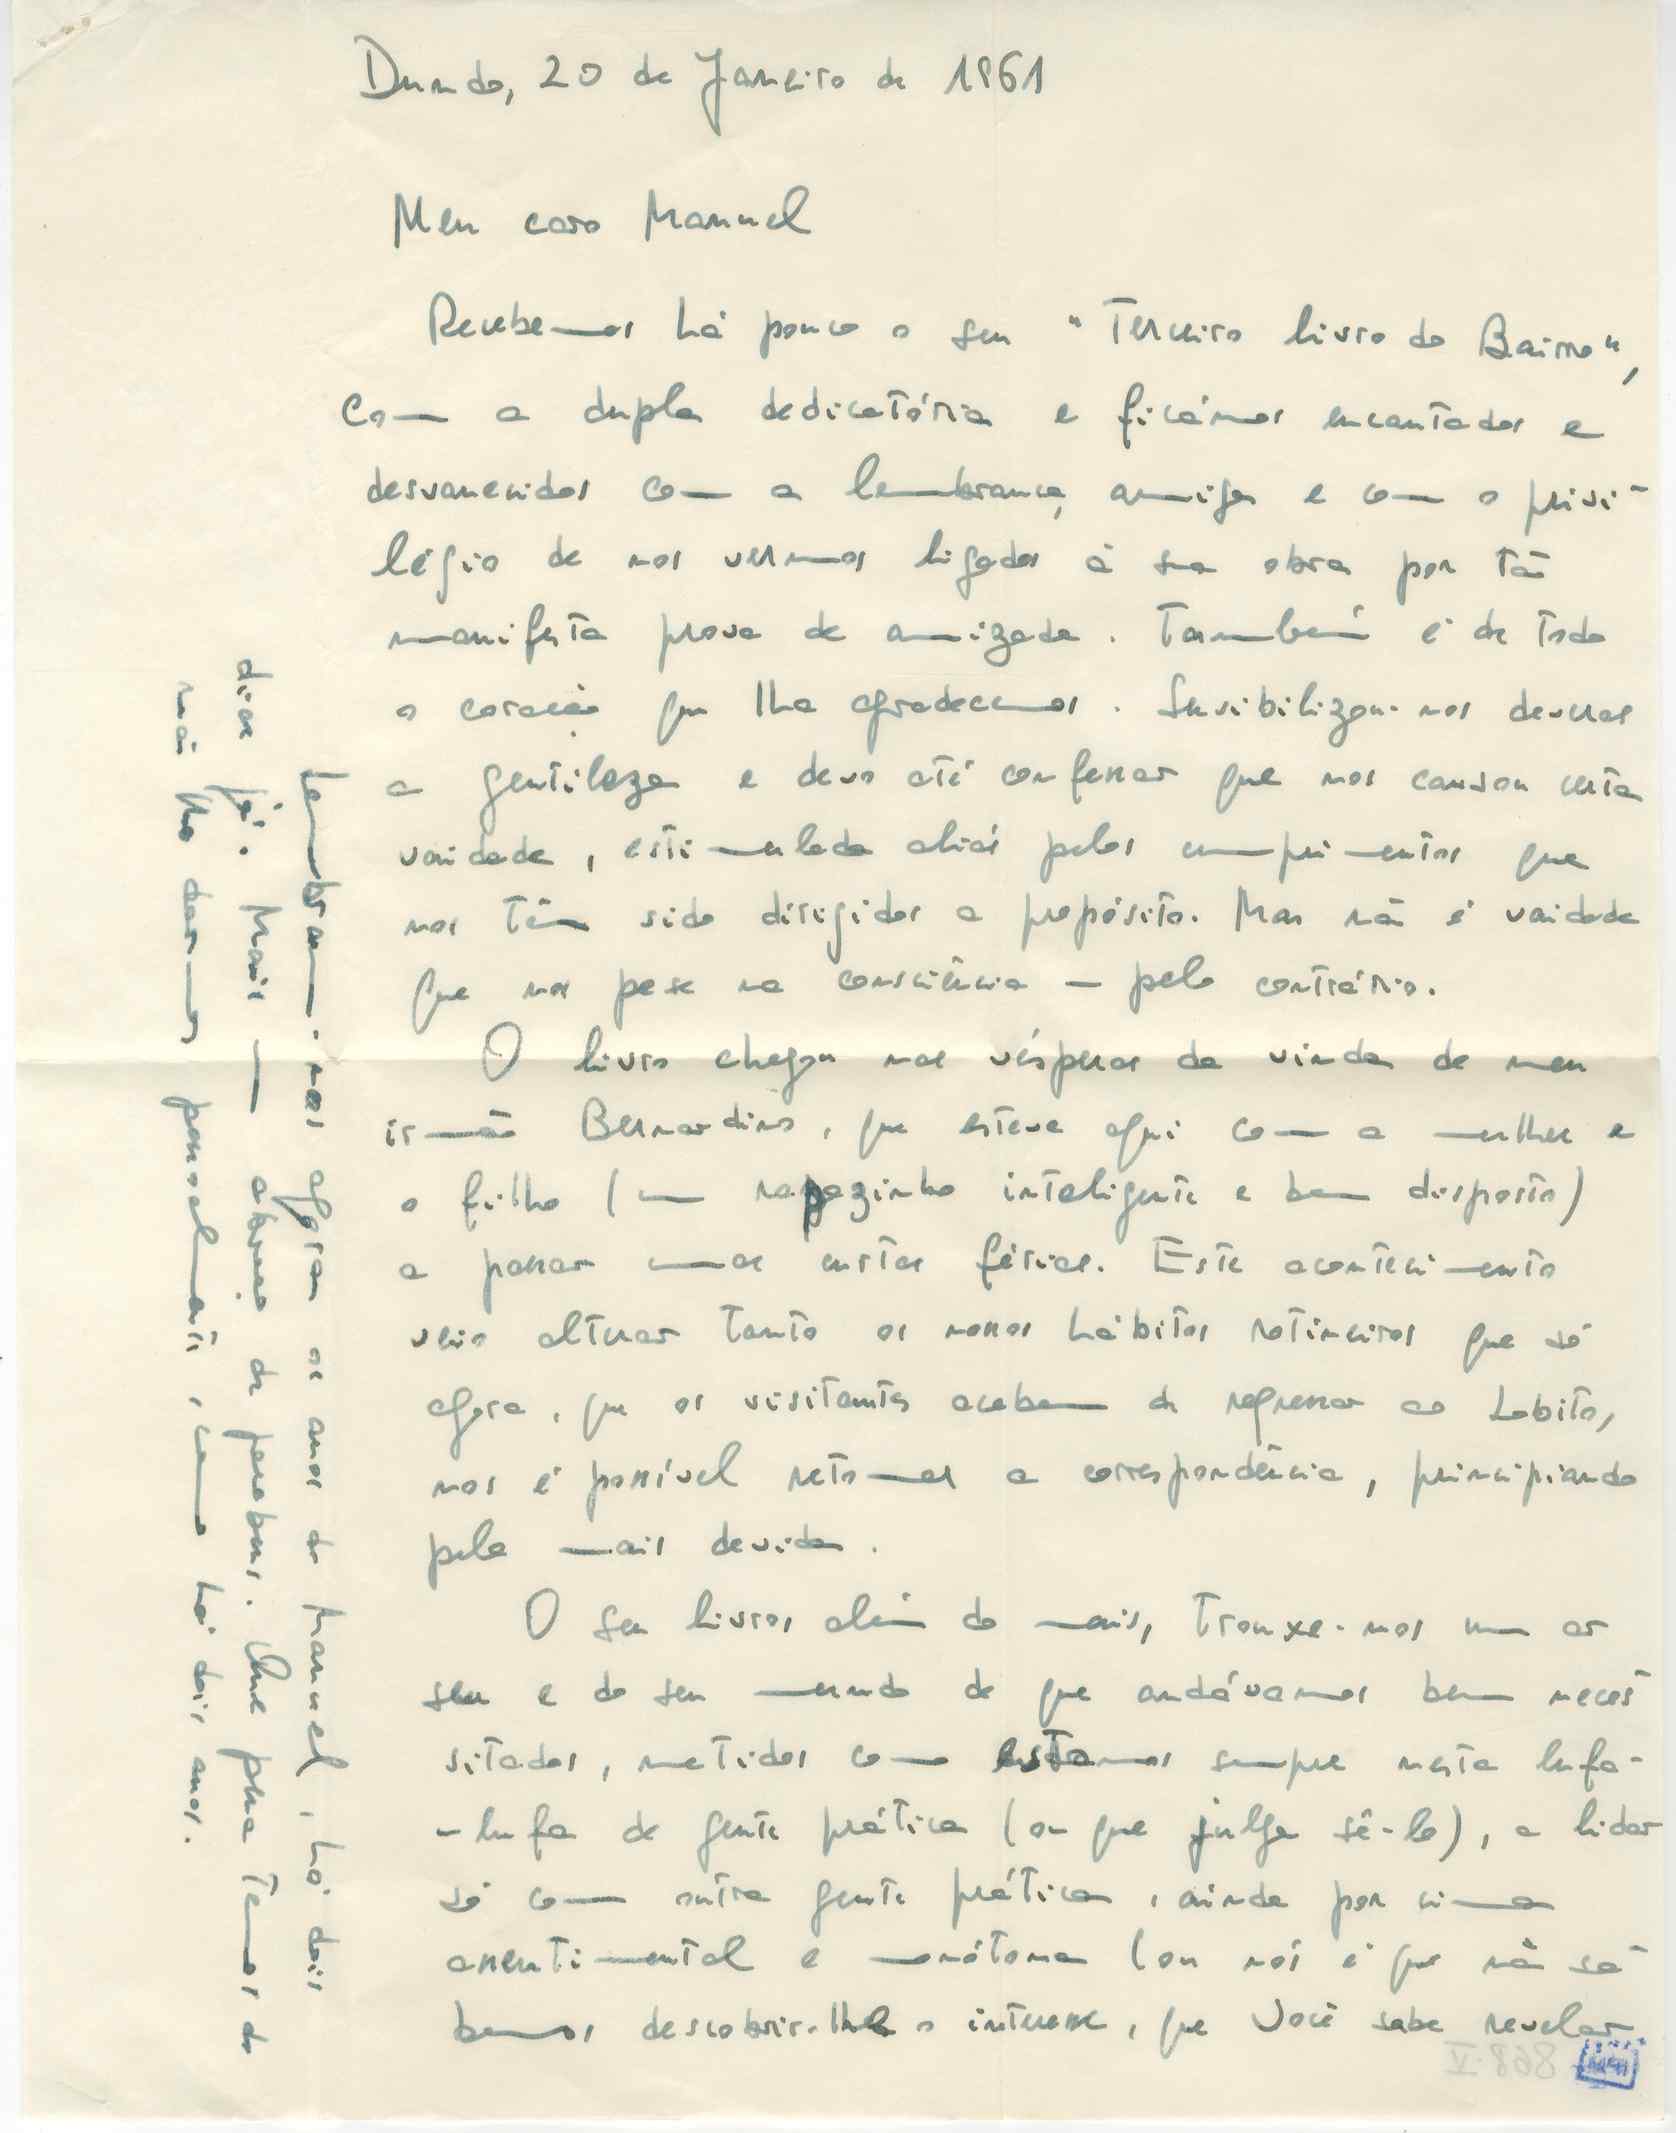 Dundo, 20 de Janeiro de 1961
Meu caro Manuel
Recebemos há pouco o seu "Terceiro livro do Bairro",
com a dupla dedicatória e ficámos encantados e
desvanecidos com a lembrança amiga e com o privi-
légio de nos vermos ligados à sua obra por tão
manifesta prova de amizade. Também é de todo
o coração que lha agradecemos. Sensibilizou-nos deveras
a gentileza e devo até confessar que nos causou certa
vaidade, estimulada aliás pelos cumprimentos que
nos têm sido dirigidos a propósito. Mas não é vaidade
que nos pese na consciência - pelo contrário.
O livro chegou nas vésperas da vinda de meu
irmão Bernardino, que esteve aqui com a mulher e
o filho (um rapazinho inteligente e bem disposto)
a passar umas curtas férias. Este acontecimento
veio alterar tanto os nossos hábitos rotineiros que só
agora, que os visitantes acabam de regressar ao Lobito,
nos é possível retomar a correspondência, principiando
pela mais devida.
O seu livros além do mais, trouxe-nos um ar
seu e do seu mundo de que andávamos bem neces
sitados, metidos como estamos sempre nesta lufa-
-lufa de gente prática (ou que julga sê-lo), a lidar
só com outra gente prática, ainda por cima
assentimental e monótona (ou nós é que não sa
bemos descobrir-lhe o interesse, que Você sabe revelar
Lembram-nos agora os anos do Manuel, há dois
dias já. Mais um abraço de parabens. Que pena temos de
não lho darmos pessoalmente, como há dois anos.
868-V